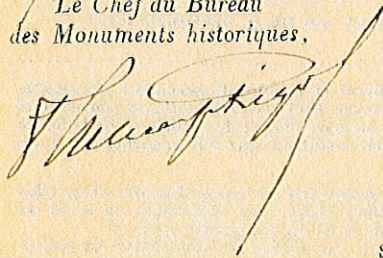 Le Chef du Bureau
des Monuments historiques,